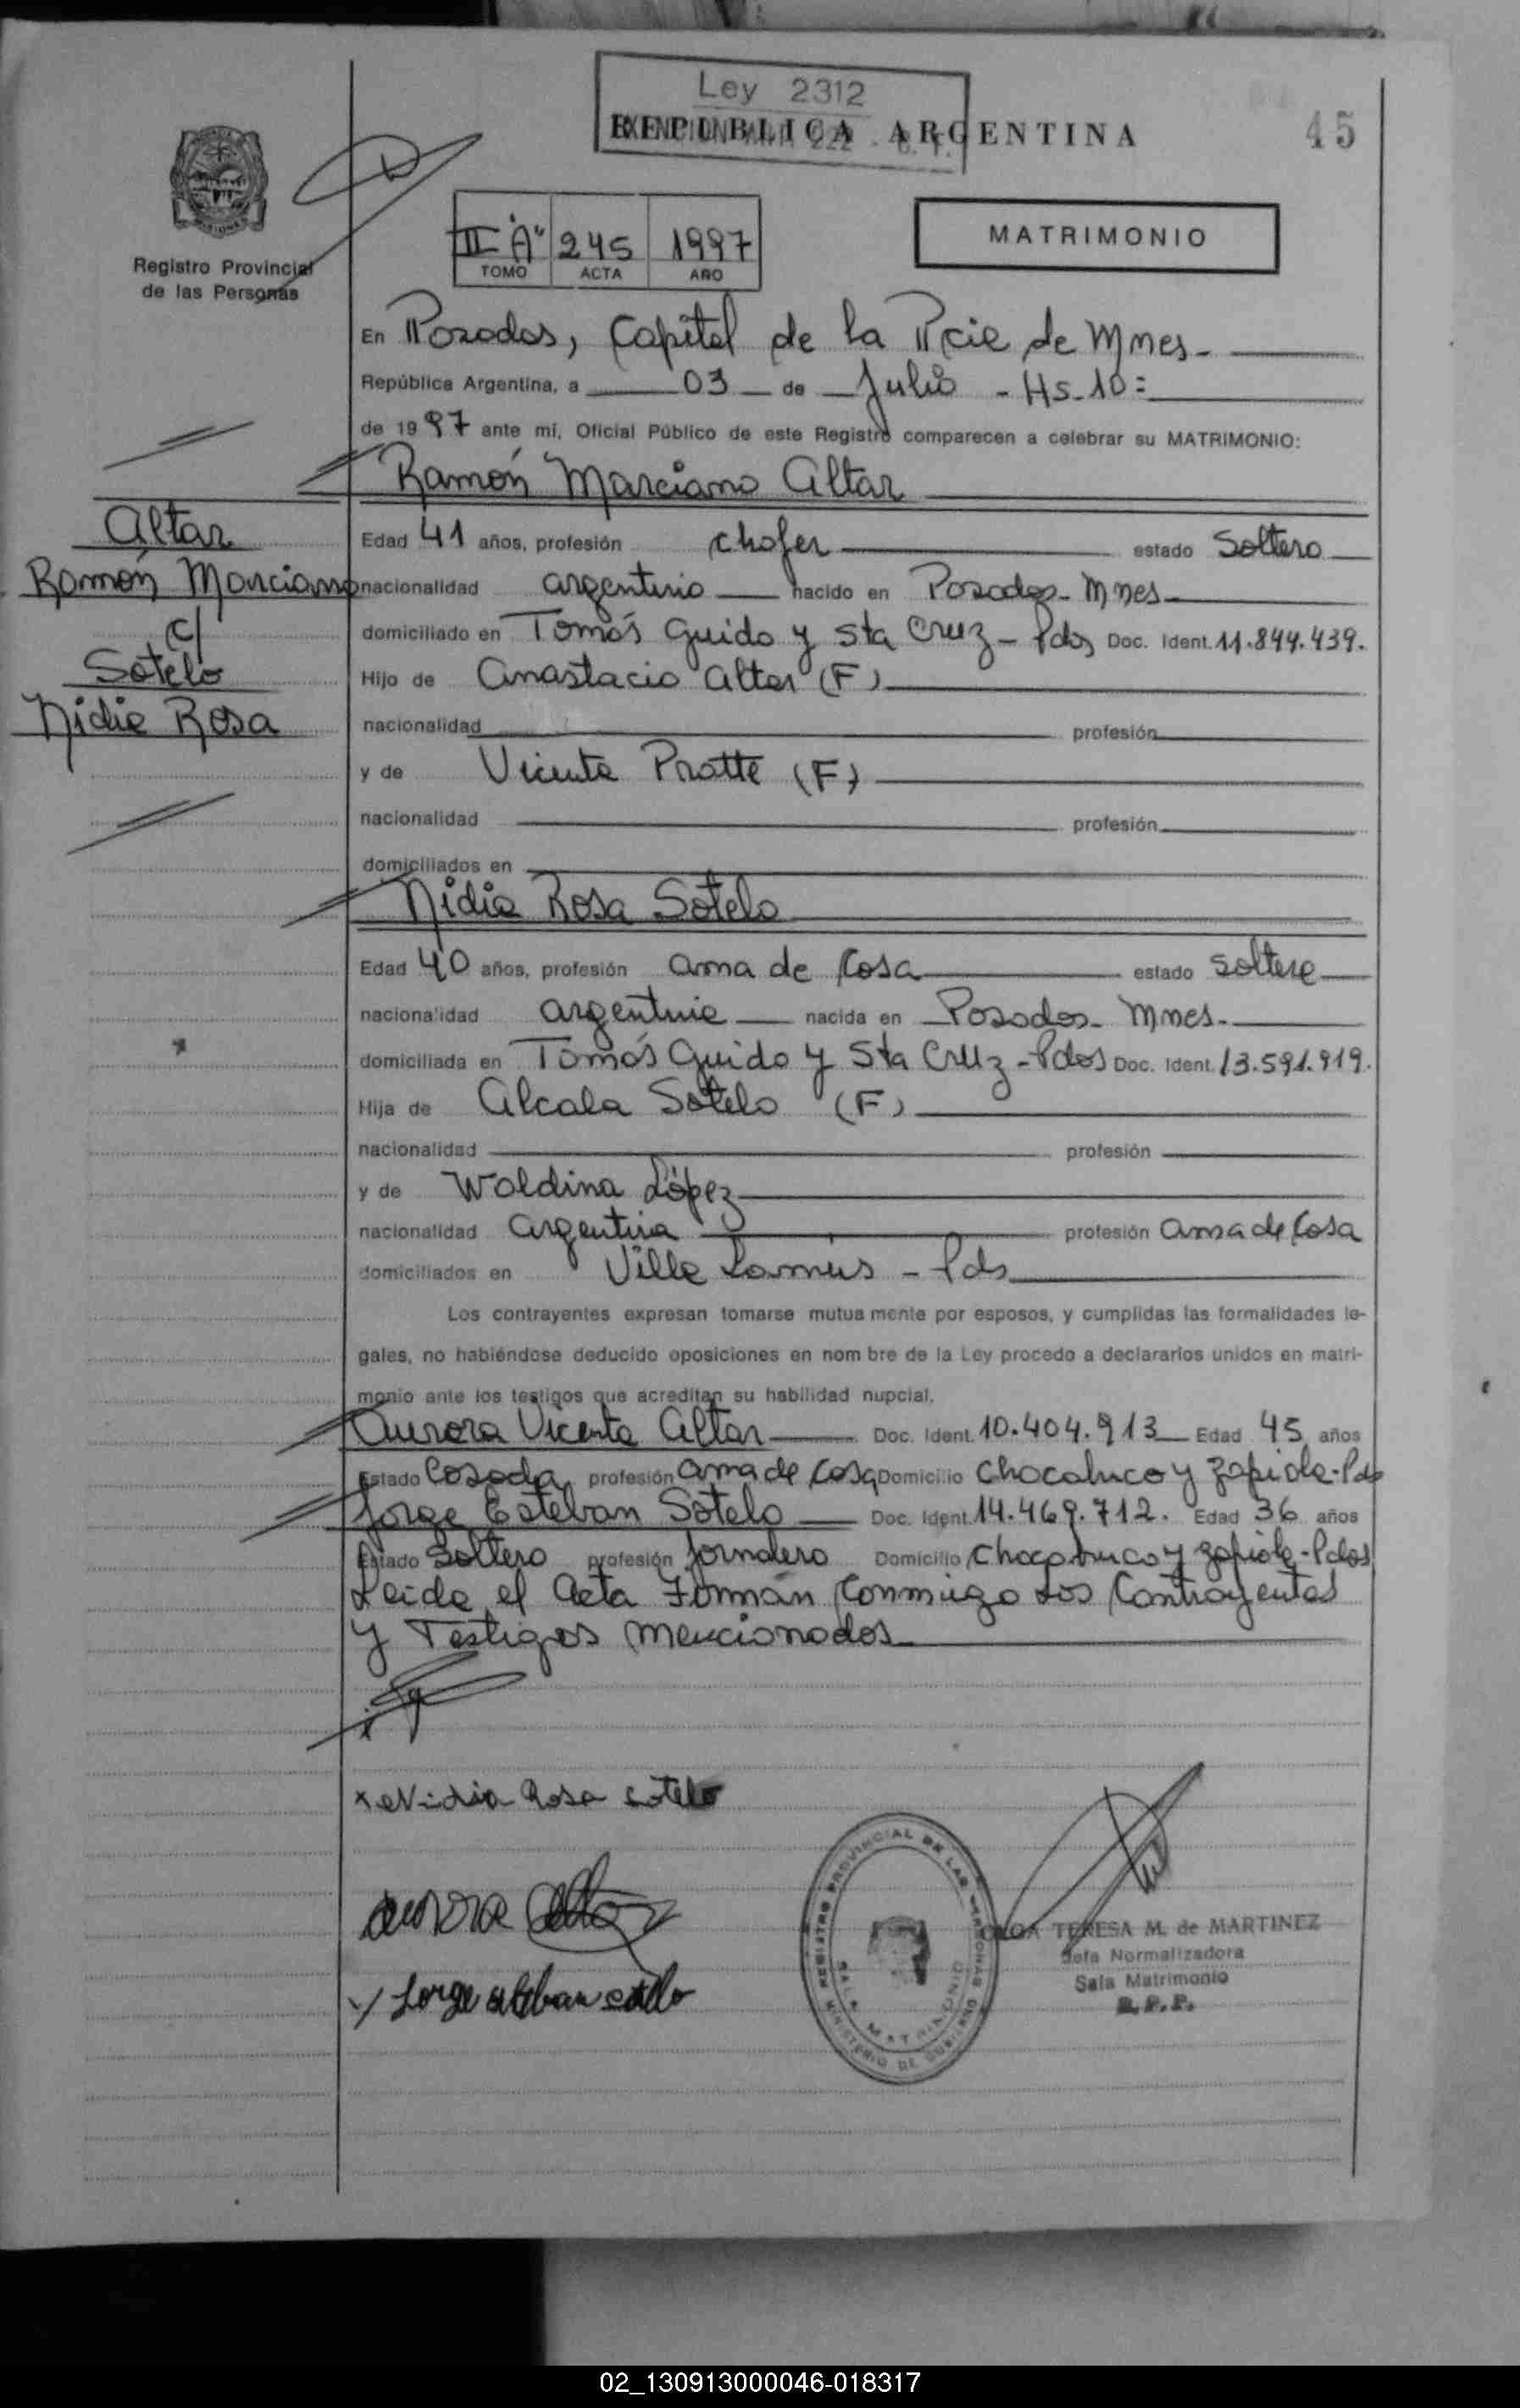 Ley 2312
REPUBLICA ARGENTINA
45
Registro Provincial
de las Personas
II "A" 245 1997
TOMO ACTA AÑO
MATRIMONIO
En Posadas, Capital de la Pcia de Mnes.
República Argentina, a 03 de Julio - Hs. 10=
de 1997 ante mí, Oficial Público de este Registro comparecen a celebrar su MATRIMONIO:
Ramón Marciano Altar
Altar
Ramón Marciano
c/
Sotelo
Nidia Rosa
Edad 41 años, profesión chofer estado Soltero
nacionalidad argentino nacido en Posadas - Mnes.
domiciliado en Tomás Guido y Sta Cruz - Pdas Doc. Ident. 11.844.439.
Hijo de Anastacio Altar (F)
nacionalidad profesión
y de Vicenta Pratte (F)
nacionalidad profesión
domiciliados en
Nidia Rosa Sotelo
Edad 40 años, profesión ama de Casa estado Soltera
nacionalidad argentina nacida en Posadas - Mnes.
domiciliada en Tomás Guido y Sta Cruz - Pdas Doc. Ident. 13.591.919.
Hija de Alcala Sotelo (F)
nacionalidad profesión
y de Woldina López
nacionalidad argentina profesión ama de Casa
domiciliados en Villa Lanús - Pdas
Los contrayentes expresan tomarse mutua mente por esposos, y cumplidas las formalidades le-
gales, no habiéndose deducido oposiciones en nom bre de la Ley procedo a declararlos unidos en matri-
monio ante los testigos que acreditan su habilidad nupcial.
Aurora Vicenta Altar Doc. Ident. 10.404.913 Edad 45 años
Estado Casada profesión ama de Casa Domicilio Chacabuco y Zapiola - Pdas
Jorge Esteban Sotelo Doc. Ident. 14.469.712. Edad 36 años
Estado Soltero profesión Jornalero Domicilio Chacabuco y Zapiola - Pdas
Leida el Acta Firman Conmigo Los Contrayentes
y Testigos mencionados
x Nidia Rosa Sotelo
aurora Altar
Jorge esteban sotelo
REGISTRO PROVINCIAL DE LAS PERSONAS
SALA MATRIMONIO
MINISTERIO DE GOBIERNO
OLGA TERESA M. de MARTINEZ
Jefa Normalizadora
Sala Matrimonio
R.P.P.
02_130913000046-018317